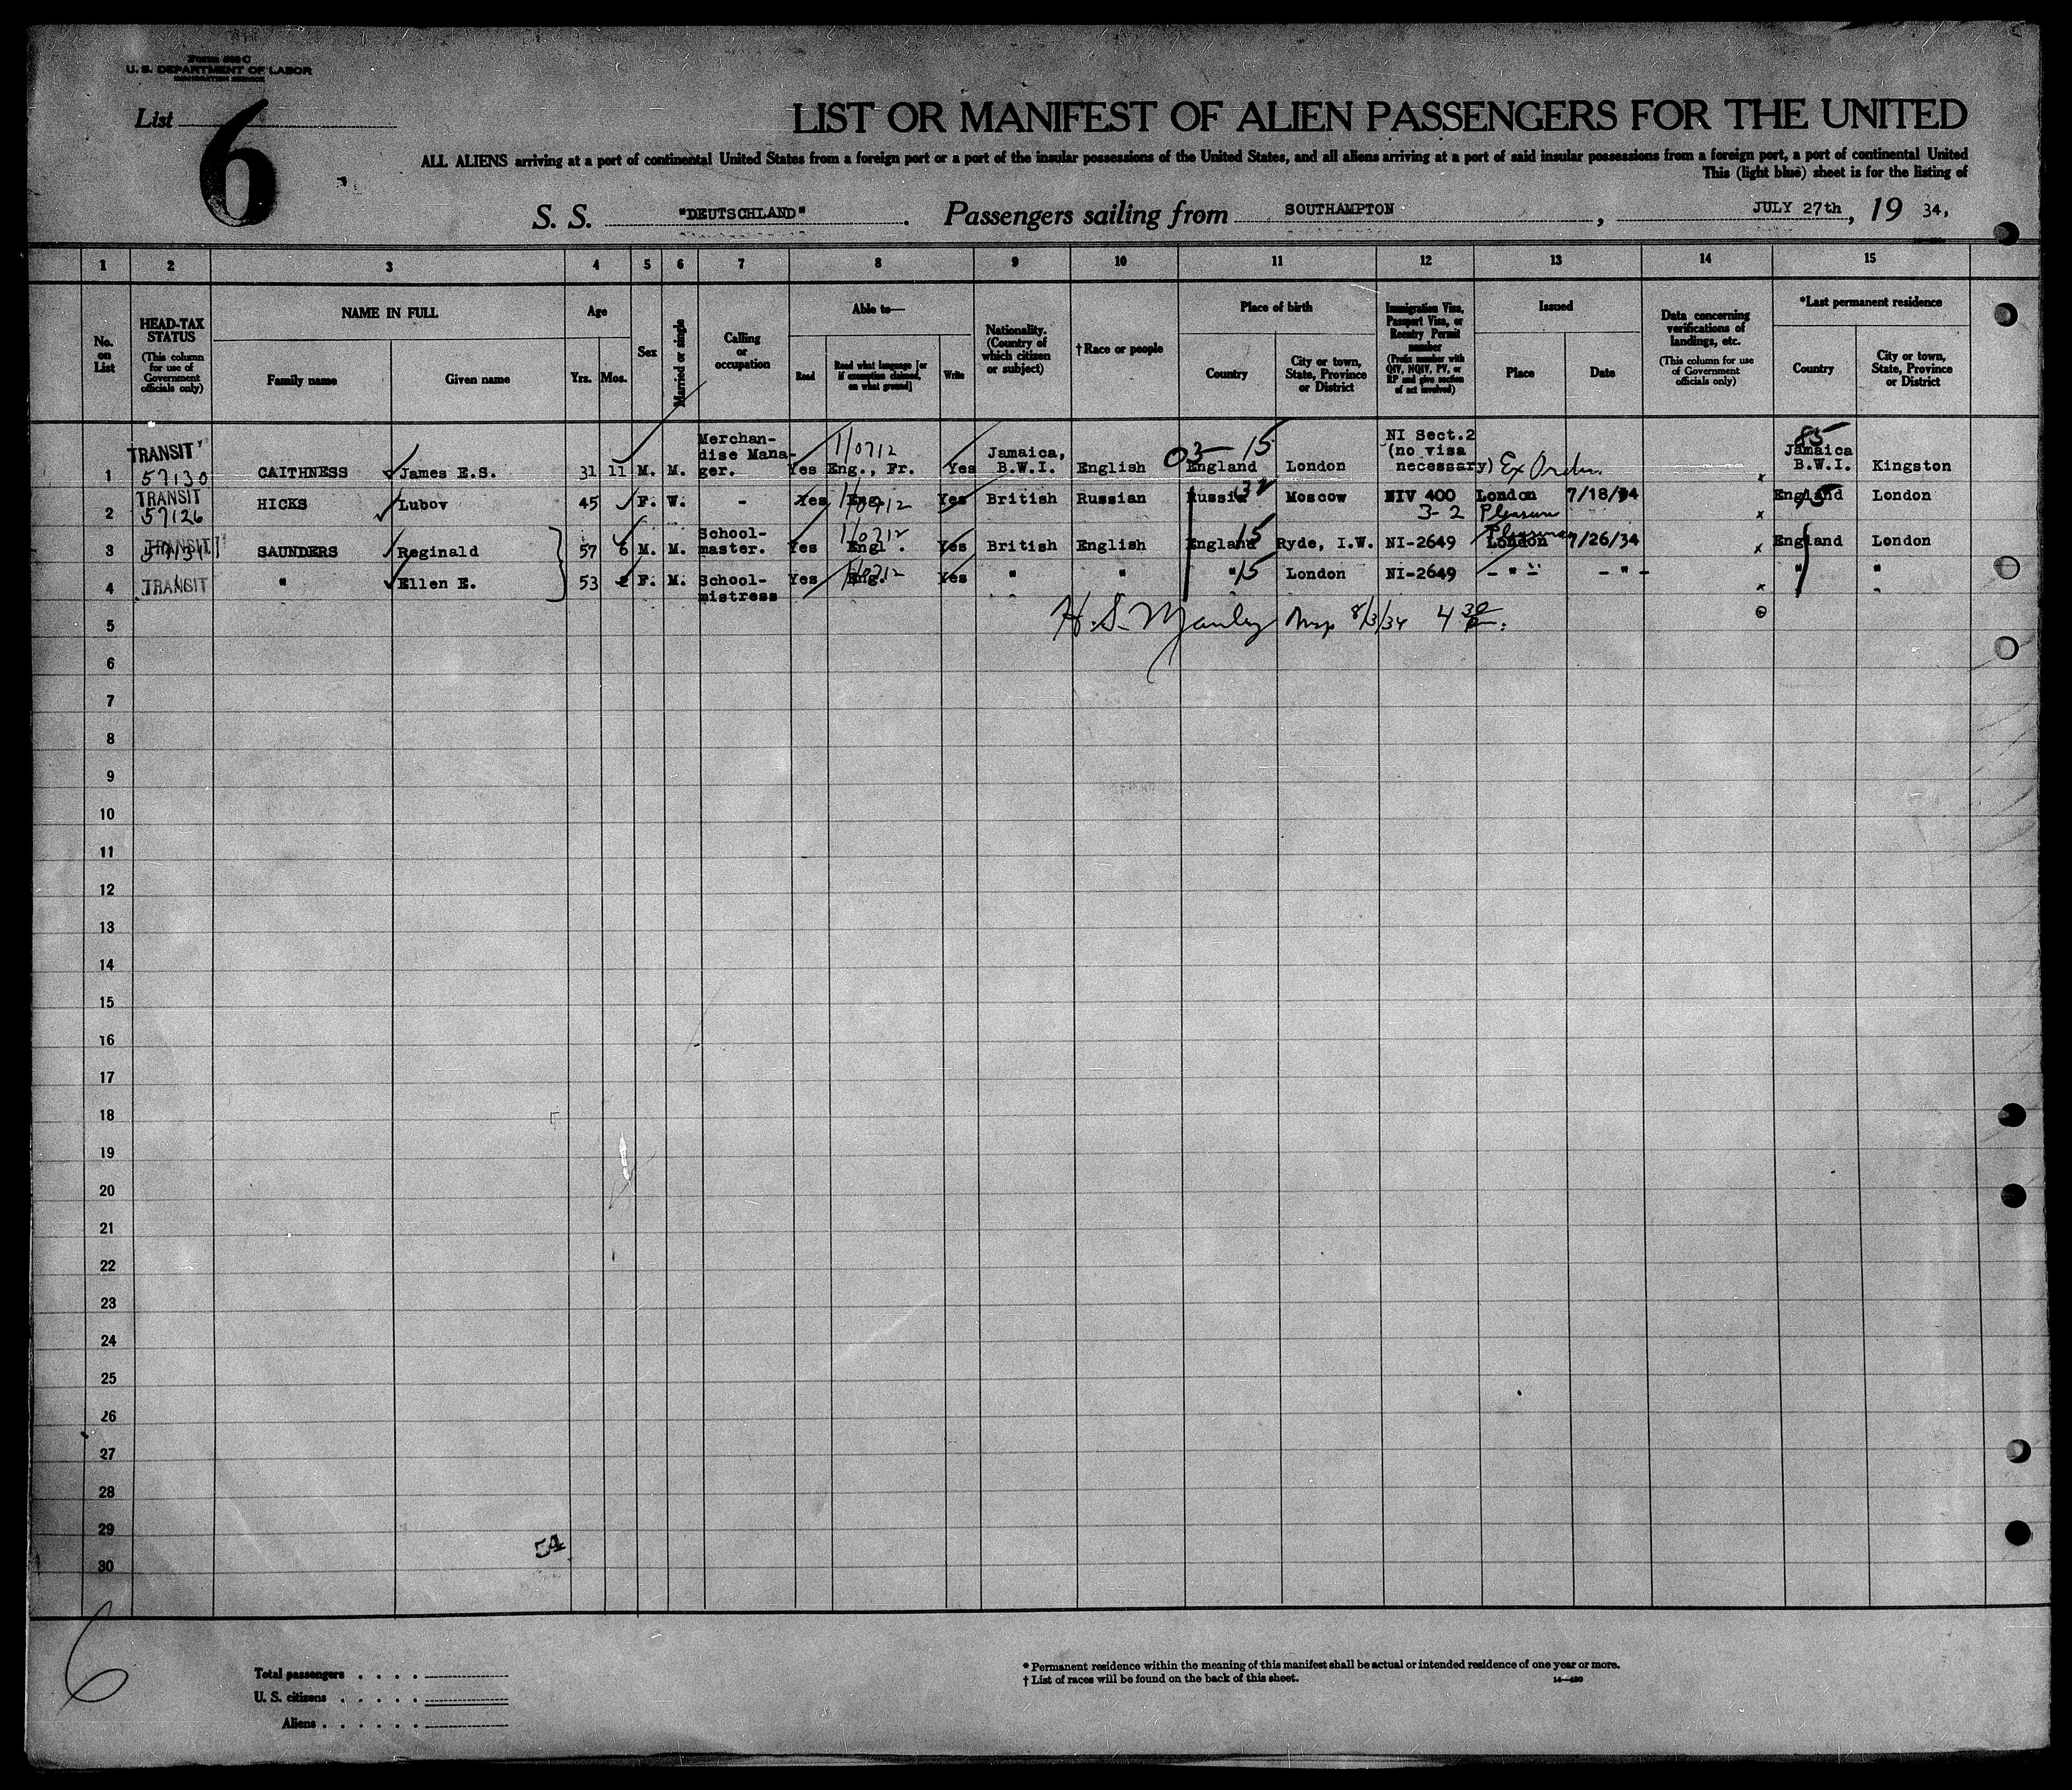 Form 500 C
U. S. DEPARTMENT OF LABOR
IMMIGRATION SERVICE
List 6
LIST OR MANIFEST OF ALIEN PASSENGERS FOR THE UNITED
ALL ALIENS arriving at a port of continental United States from a foreign port or a port of the insular possessions of the United States, and all aliens arriving at a port of said insular possessions from a foreign port, a port of continental United
This (light blue) sheet is for the listing of
S. S. "DEUTSCHLAND". Passengers sailing from SOUTHAMPTON, JULY 27th, 19 34,
1 2 3 4 5 6 7 8 9 10 11 12 13 14 15
No. on List
HEAD-TAX STATUS
(This column for use of Government officials only)
NAME IN FULL
Family name Given name
Age
Yrs. Mos.
Sex
Married or single
Calling or occupation
Able to—
Read
Read what language [or if exemption claimed, on what ground]
Write
Nationality. (Country of which citizen or subject)
†Race or people
Place of birth
Country
City or town, State, Province or District
Immigration Visa, Passport Visa, or Reentry Permit number
(Prefix number with QIV, NQIV, PV, or RP and give section of act involved)
Issued
Place Date
Data concerning verifications of landings, etc.
(This column for use of Government officials only)
*Last permanent residence
Country
City or town, State, Province or District
1 TRANSIT 57130 CAITHNESS James E.S. 31 11 M. M. Merchan-dise Mana-ger. Yes Eng., Fr. Yes Jamaica, B.W.I. English England London NI Sect.2 (no visa necessary) Jamaica B.W.I. Kingston
110712 03 15 85
2 TRANSIT 57126 HICKS Lubov 45 F. W. - Yes Eng. Yes British Russian Russia Moscow NIV 400 3-2 London Pleasure 7/18/34 England London
3 TRANSIT 57131 SAUNDERS Reginald 57 6 M. M. School-master. Yes Engl. Yes British English England Ryde, I.W. NI-2649 Pleasure London 7/26/34 England London
15
4 TRANSIT " Ellen E. 53 2 F. M. School-mistress Yes Eng. Yes " " " London NI-2649 - " - - " - " "
15
5 H. S. Manley Insp 8/3/34 4 30 P.
6
7
8
9
10
11
12
13
14
15
16
17
18
19
20
21
22
23
24
25
26
27
28
29
30
54
6
Total passengers
U. S. citizens
Aliens
* Permanent residence within the meaning of this manifest shall be actual or intended residence of one year or more.
† List of races will be found on the back of this sheet.